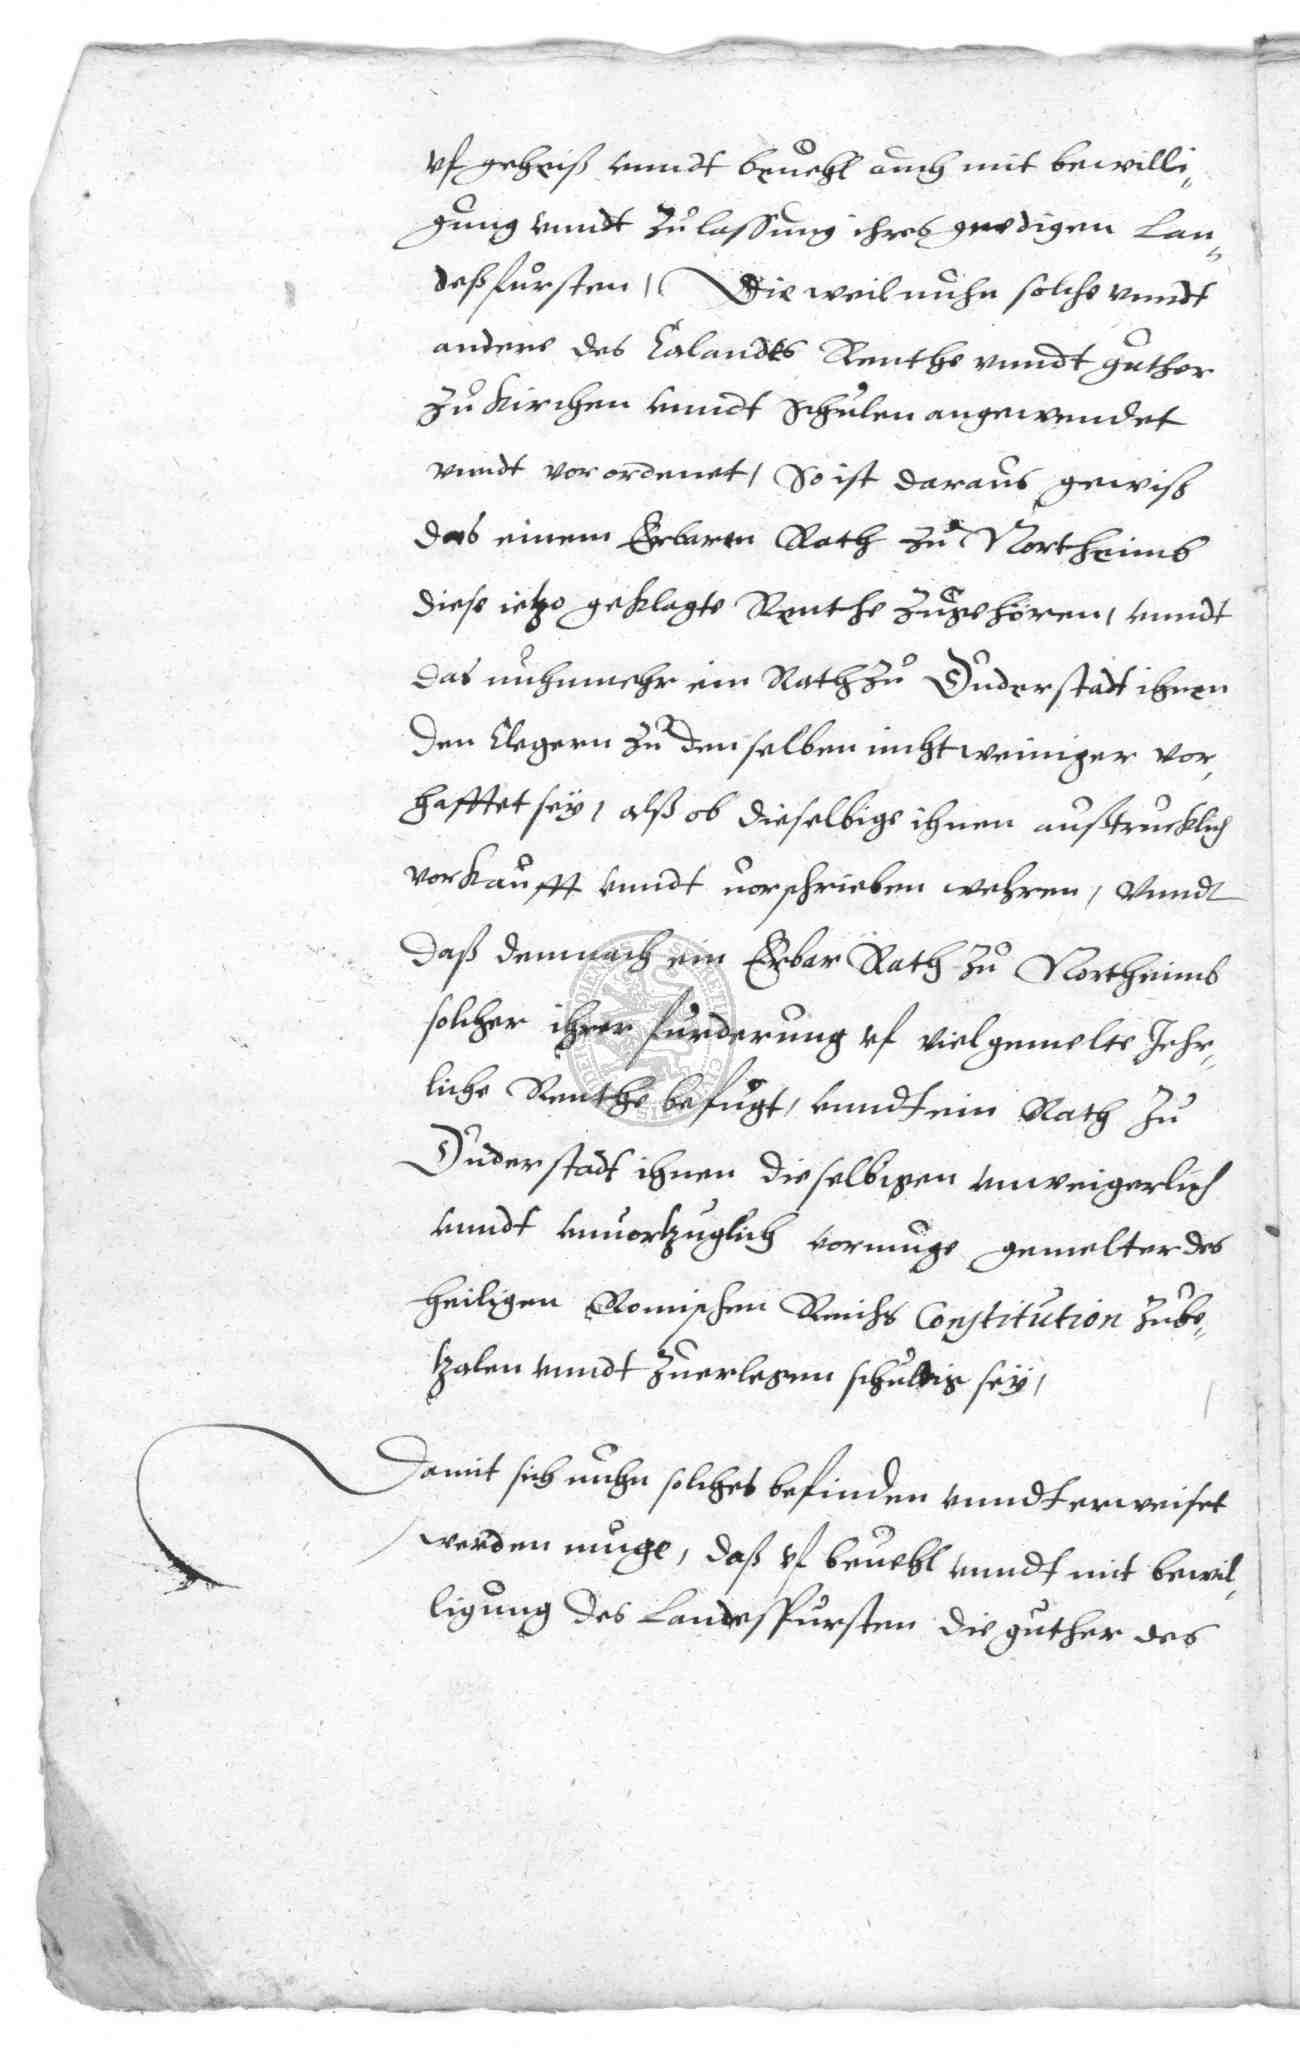 vf geheiß vnndt beuehl auch mit bewilli„
gung vnndt Zulassung ihres gnedigen Lan„
deßfursten, Die weil nuhn solche vnndt
andere des Calandts Renthe vnndt guther
Zu Kirchen vnndt Schulen angewendet
vnndt vorordenet, So ist daraus gewiß
das einem Erbarn Rath zu Northeimb
diese ietzo geklagte Renthe Zugehören, vnndt
das nuhnmehr ein Rath Zu Duderstadt ihnen
den Clegern Zu denselben nicht weiniger vor„
hafftet sey, alß ob dieselbige ihnen austrucklich
vorkaufft vnndt vorschrieben wehren, Vnndt
daß demnach ein Erbar Rath Zu Northeimb
solcher ihrer furderung vf vielgemelte Jehr„
liche Renthe befugt, vnndt ein Rath Zu
Duderstadt ihnen dieselbigen vnweigerlich
vnndt vnuortzuglich vormuge gemelter des
heiligen Romischen Reichs Constitution Zube„
tzalen vnndt Zuerlegen schuldig sey,
Damit sich nuhn solches befinden vnndt erweiset
werden muge, daß vf beuehl vnndt mit bewil„
ligung des Landesfursten die guther des